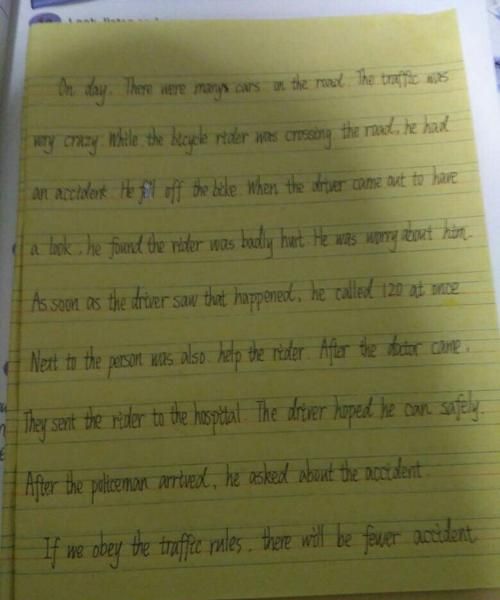 On day. There were manys cars on the road. The traffic was
very crazy. While the bicycle rider was crossing the road, he had
an accident. He fell off the bike. When the driver came out to have
a look, he found the rider was badly hurt. He was worry about him.
As soon as the driver saw that happened, he called 120 at once
Next to the person was also help the rider. After the doctor came,
They sent the rider to the hospital. The driver hoped he can safely.
After the policeman arrived, he asked about the accident.
If we obey the traffic rules, there will be fewer accident